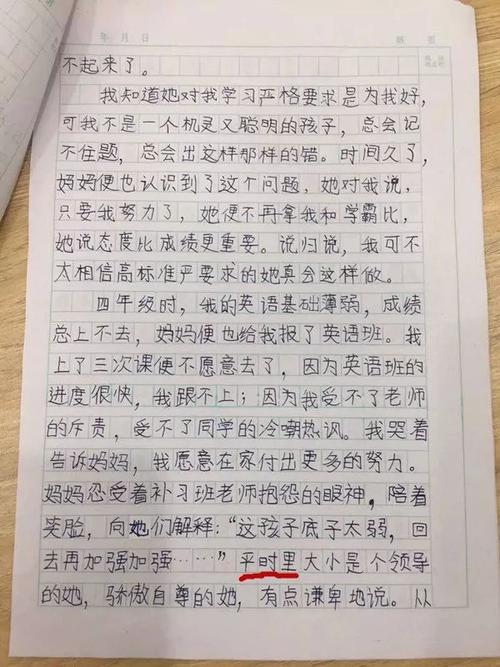 年 月 日
不起来了。
我知道她对我学习严格要求是为我好，
可我不是一个机灵又聪明的孩子，总会记
不住题，总会出这样那样的错。时间久了，
妈妈便也认识到了这个问题，她对我说，
只要我努力了，她便不再拿我和学霸比，
她说态度比成绩更重要。说归说，我可不
太相信高标准严要求的她真会这样做。
四年级时，我的英语基础薄弱，成绩
总上不去，妈妈便也给我报了英语班。我
上了三次课便不愿意去了，因为英语班的
进度很快，我跟不上；因为我受不了老师
的斥责，受不了同学的冷嘲热讽。我哭着
告诉妈妈，我愿意在家付出更多的努力。
妈妈忍受着补习班老师抱怨的眼神，陪着
笑脸，向她们解释：“这孩子底子太弱，回
去再加强加强……”平时里大小是个领导
的她，骄傲自尊的她，有点谦卑地说。从